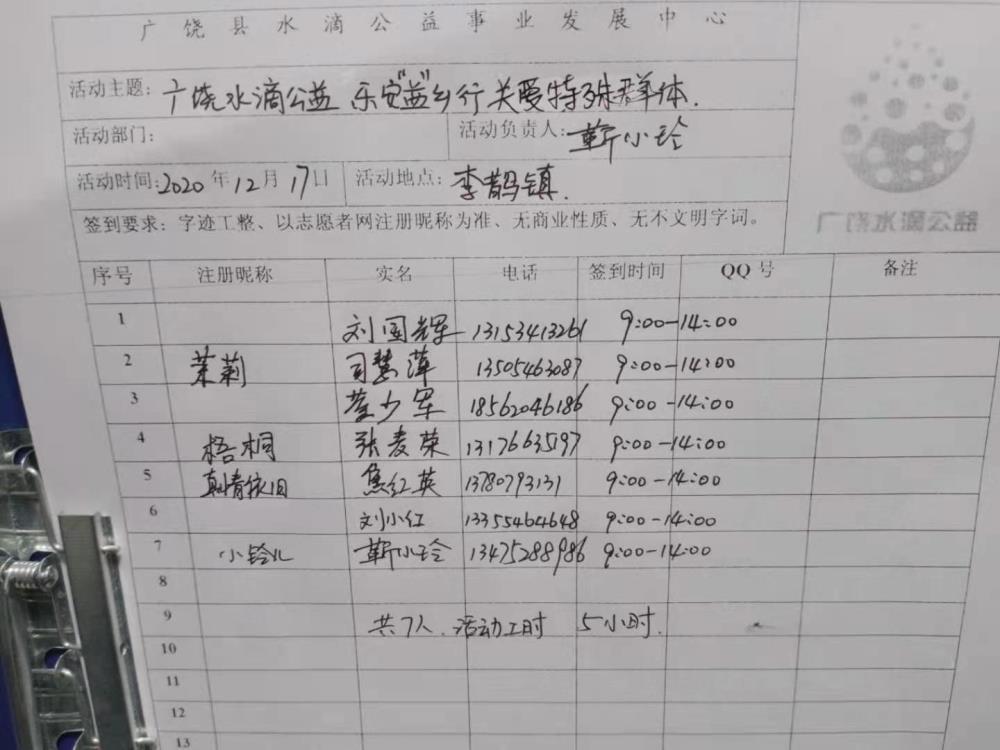 广饶县水滴公益事业发展中心
活动主题：广饶水滴公益 乐安"益"乡行关爱特殊群体.
活动部门： 活动负责人：靳小玲
活动时间：2020年12月17日 活动地点：李鹊镇.
签到要求：字迹工整、以志愿者网注册昵称为准、无商业性质、无不文明字词。
广饶水滴公益
序号 注册昵称 实名 电话 签到时间 QQ号 备注
1 刘国辉 13153413261 9:00-14:00
2 茉莉 司慧萍 13505463087 9:00-14:00
3 少军 18562046186 9:00-14:00
4 梧桐 张麦荣 13176635197 9:00-14:00
5 真情依旧 焦红英 13780793131 9:00-14:00
6 刘小红 13355464648 9:00-14:00
7 小铃儿 靳小玲 13475288986 9:00-14:00
8
9 共7人.活动工时 5小时.
10
11
12
13